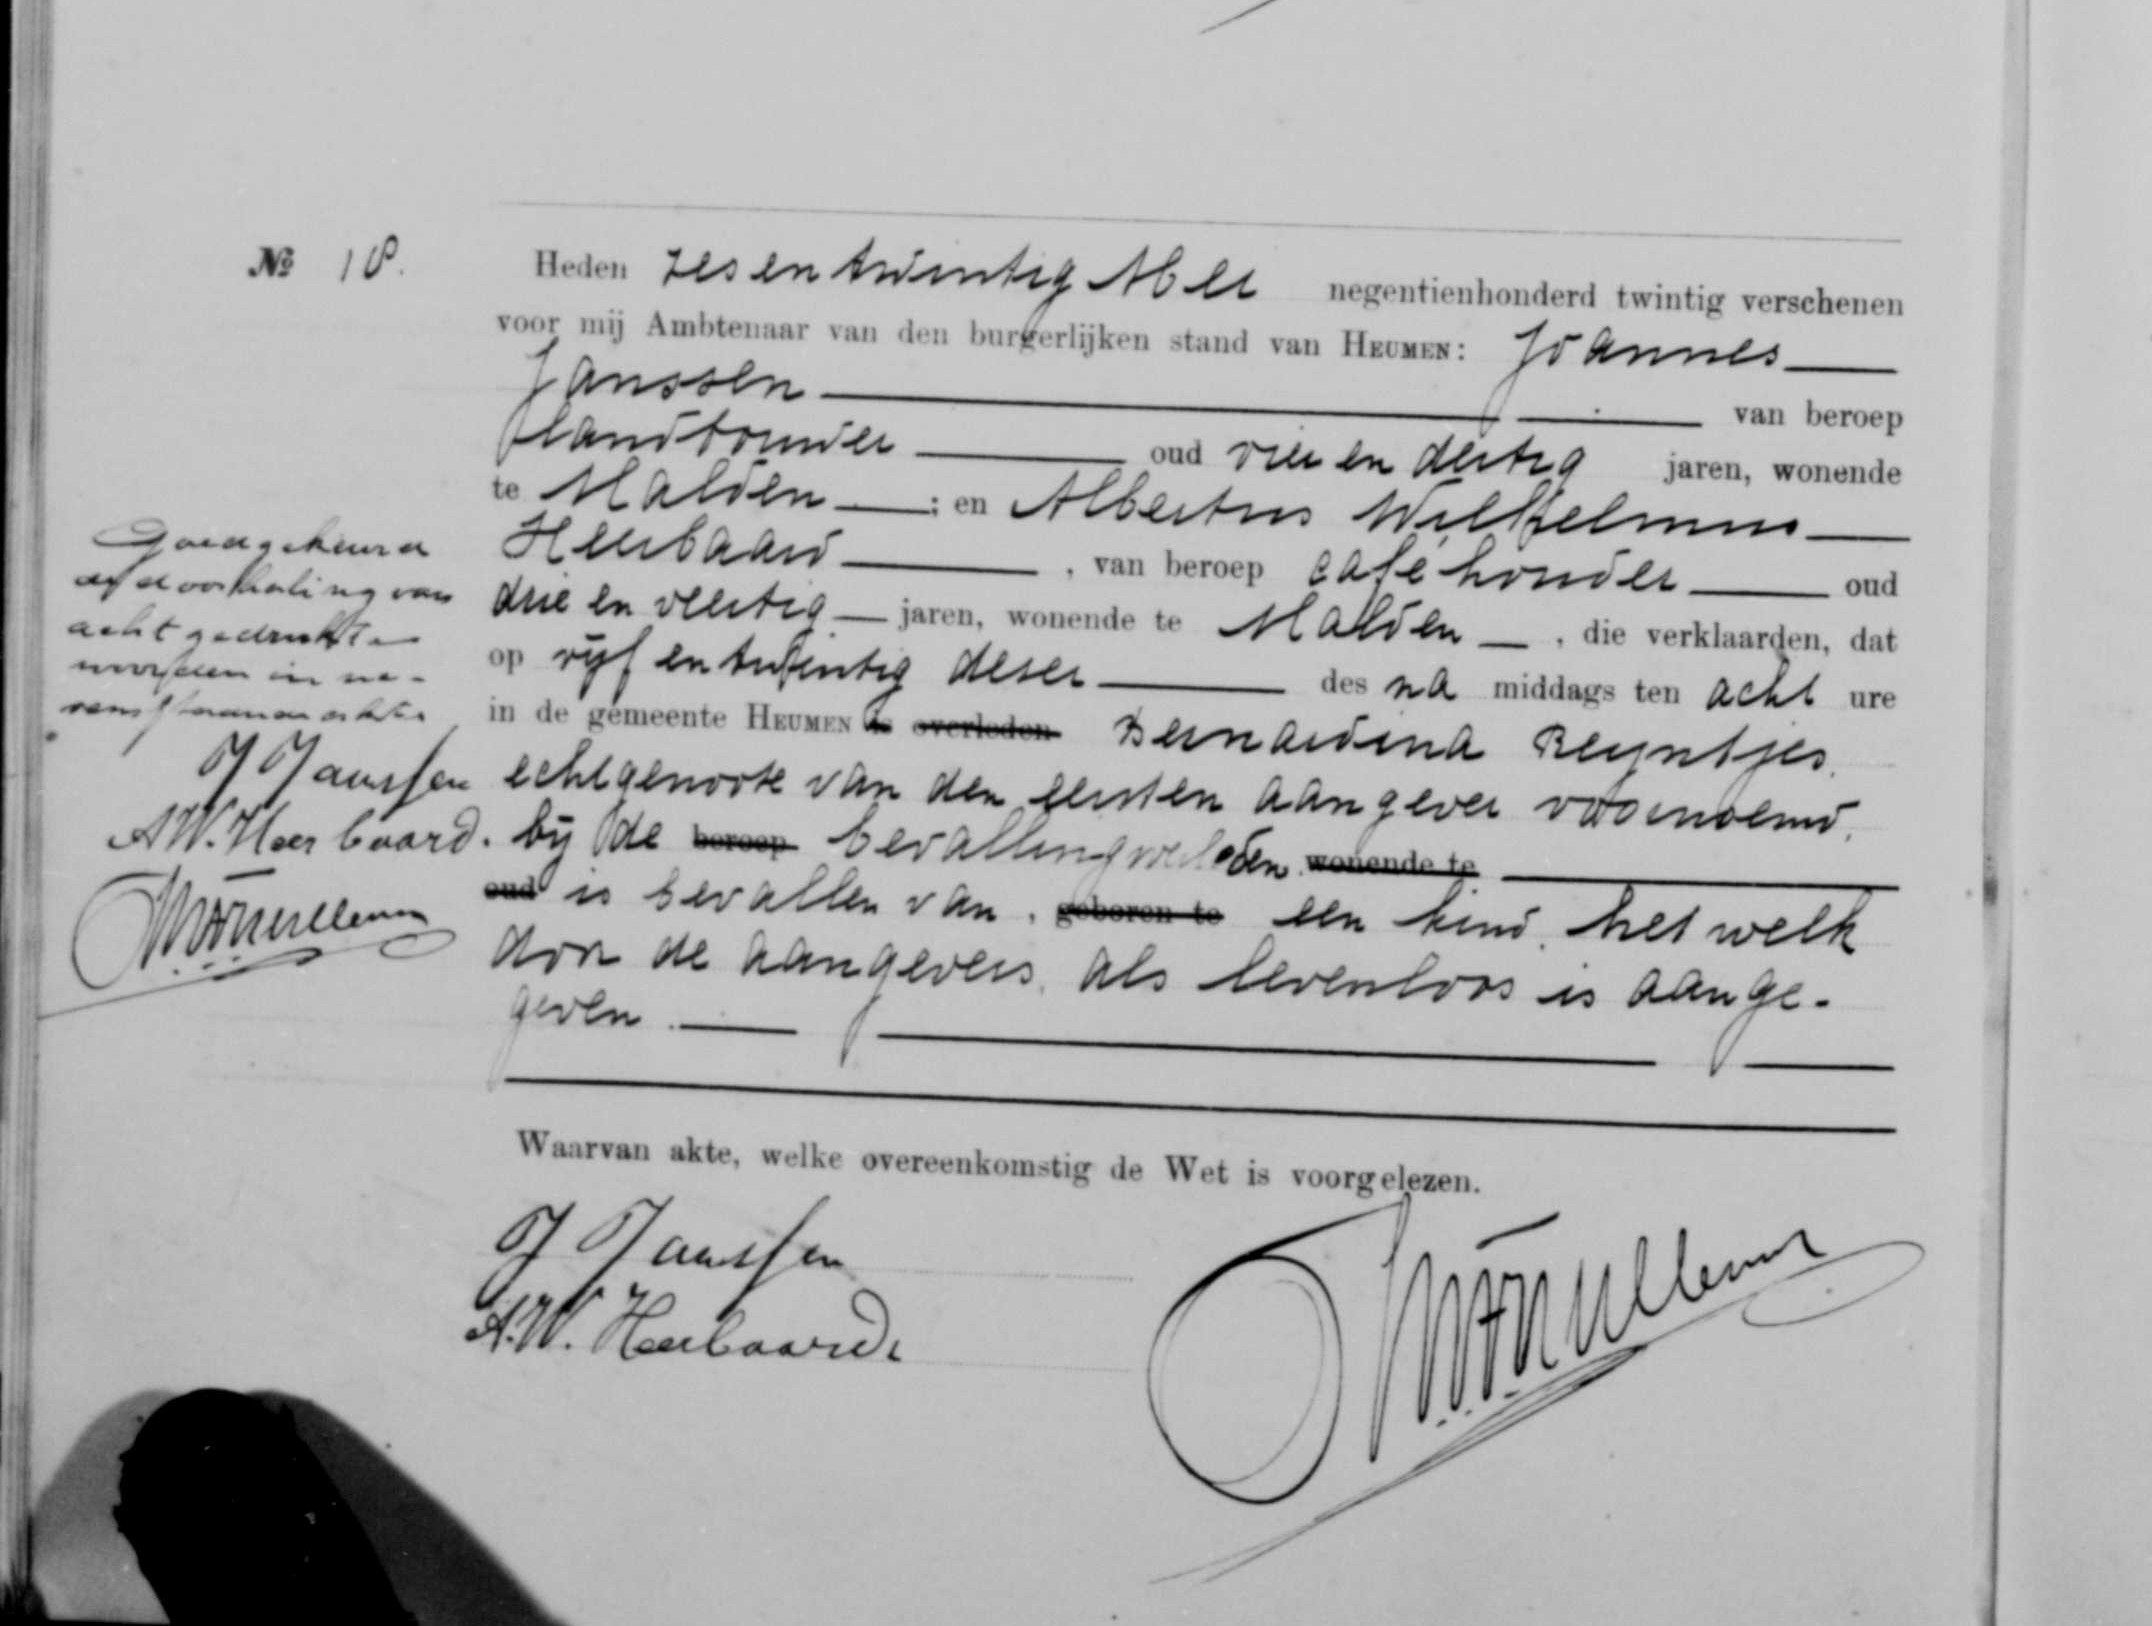 № 18.
Heden zes en twintig Mei negentienhonderd twintig verschenen
voor mij Ambtenaar van den burgerlijken stand van HEUMEN: Joannes
Janssen van beroep
landbouwer oud vier en dertig jaren, wonende
te Malden ; en Albertus Wilhelmus
Heerbaard , van beroep caféhouder oud
drie en veertig jaren, wonende te Malden , die verklaarden, dat
op vijf en twintig dezer des na middags ten acht ure
in de gemeente HEUMEN is overleden Bernardina Reijntjes,
echtgenoote van den eersten aangever voornoemd,
bij de beroep bevalling overleden wonende te
oud is bevallen van, geboren te een kind, het welk
door de aangevers, als levenloos is aange-
geven.
Waarvan akte, welke overeenkomstig de Wet is voorgelezen.
J Janssen
A.W. Heerbaard
Goedgekeurd
de doorhaling van
acht gedrukte
woorden in ne-
vensstaande akte
J Janssen
A.W. Heerbaard.